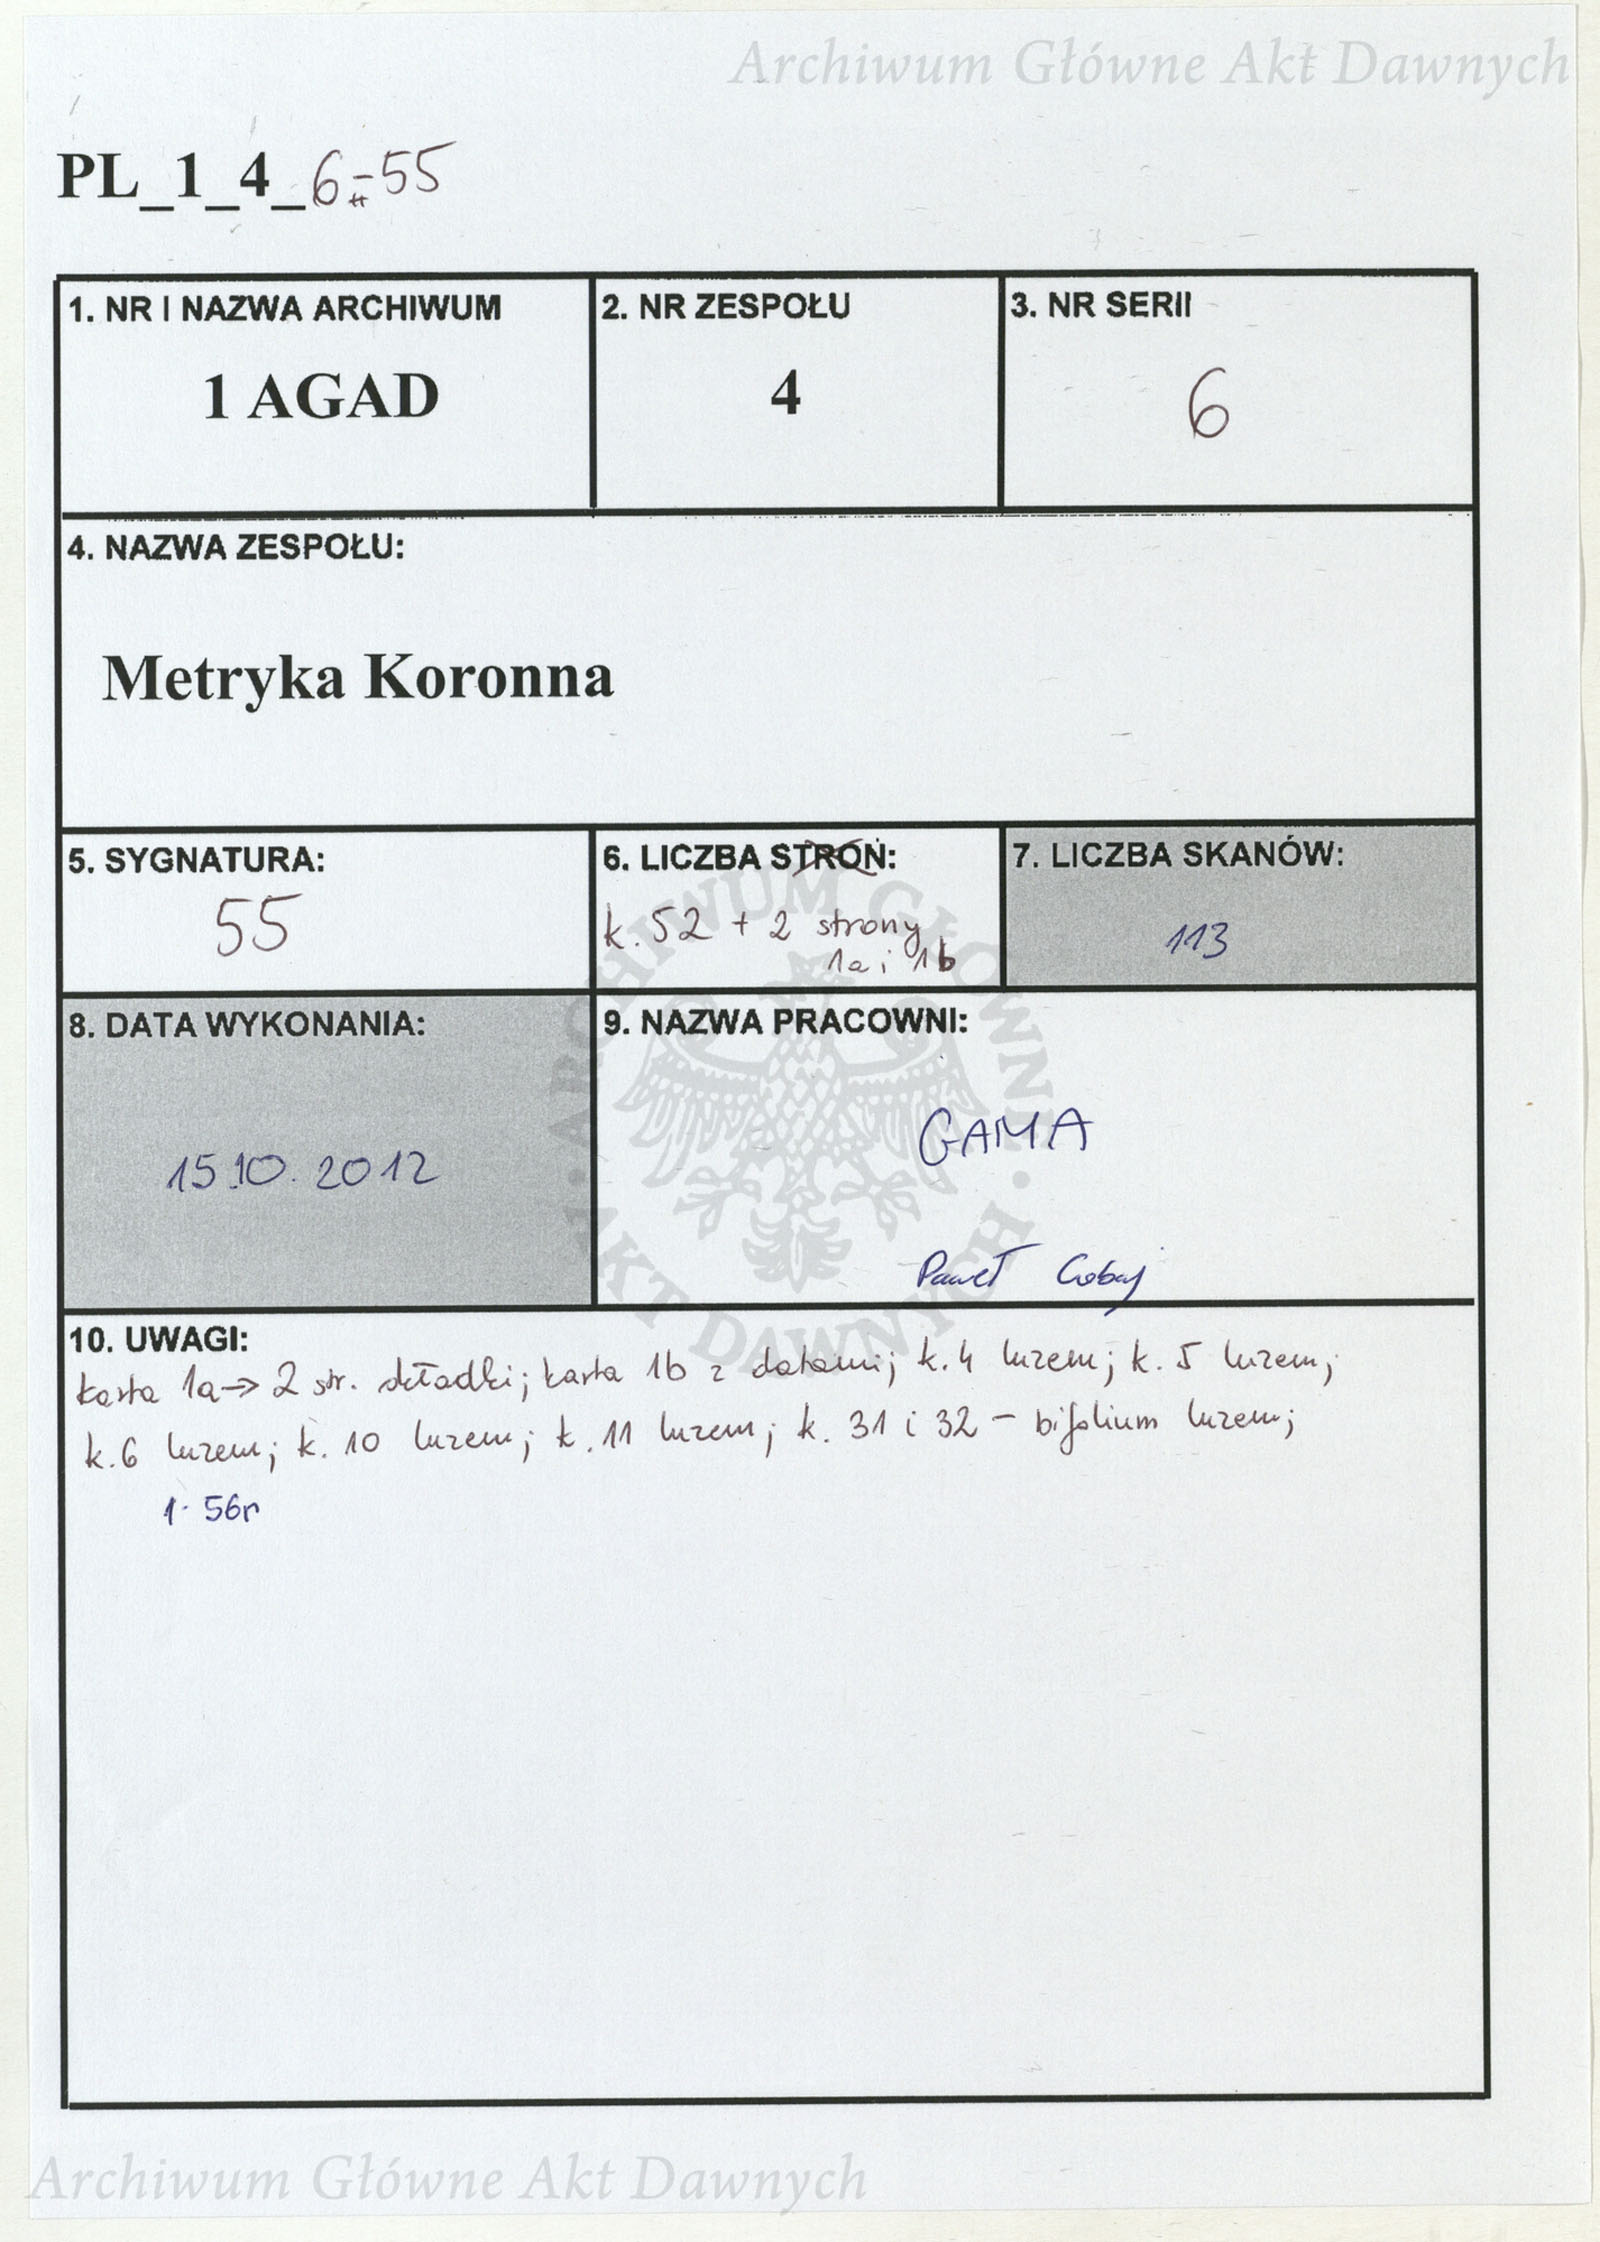 Archiwum Główne Akt Dawnych
PL_1_4_6-55
1. NR I NAZWA ARCHIWUM
1 AGAD
2. NR ZESPOŁU
4
3. NR SERII
6
4. NAZWA ZESPOŁU:
Metryka Koronna
5. SYGNATURA:
55
6. LICZBA STRON:
k. 52 + 2 strony
1a i 1b
7. LICZBA SKANÓW:
113
8. DATA WYKONANIA:
15.10.2012
9. NAZWA PRACOWNI:
GAMA
Paweł
10. UWAGI:
karta 1a → 2 str. okładki; karta 1b z datami; k. 4 luzem; k. 5 luzem;
k. 6 luzem; k. 10 luzem; k. 11 luzem; k. 31 i 32 – bifolium luzem;
1-56r
ARCHIWUM GŁÓWNE · AKT DAWNYCH ·
Archiwum Główne Akt Dawnych